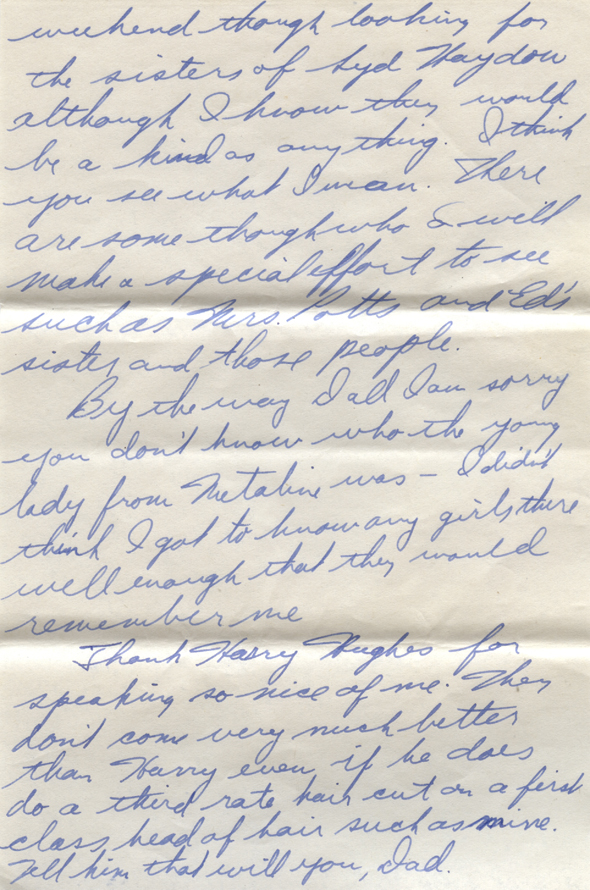 weekend though looking for
the sisters of Syd Haydon
although I know they would
be a kind as anything. I think
you see what I mean. There
are some though who I will
make a special effort to see
such as Mrs. Potts and Ed's
sister and those people.
By the way Dad I am sorry
you don't know who the young
lady from Metaline was - I didn't
think I got to know any girls there
well enough that they would
remember me
Thank Harry Hughes for
speaking so nice of me. They
don't come very much better
than Harry even if he does
do a third rate hair cut on a first
class head of hair such as mine.
Tell him that will you, Dad.